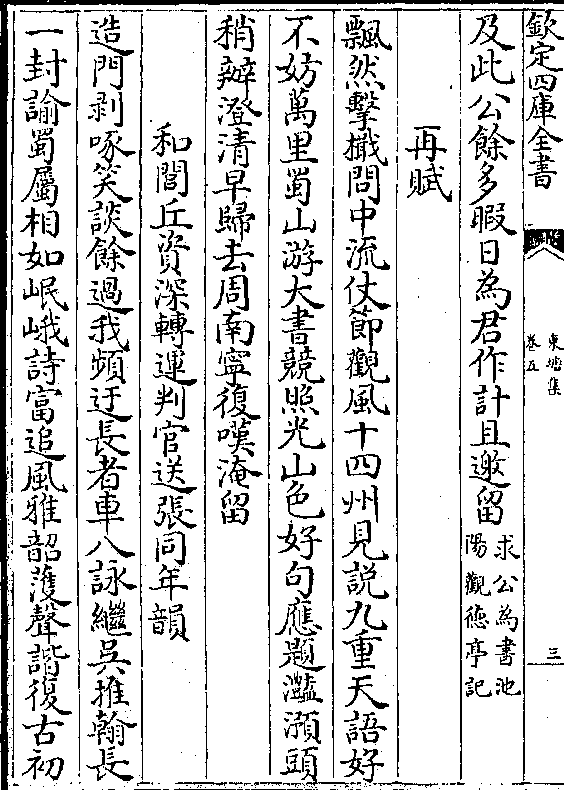 欽定四庫全書
東塘集
卷五
三
及此公餘多暇日為君作計且邀留求公為書池
陽觀德亭記
再賦
飄然擊檝問中流仗節觀風十四州見説九重天語好
不妨萬里蜀山游大書競照光山色好句應題灩澦頭
稍辦澄清早歸去周南寧復嘆淹留
和閭丘資深轉運判官送張同年韻
造門剥啄笑談餘過我頻迂長者車八詠繼吳推翰長
一封諭蜀屬相如岷峨詩富追風雅韶䕶聲諧復古初